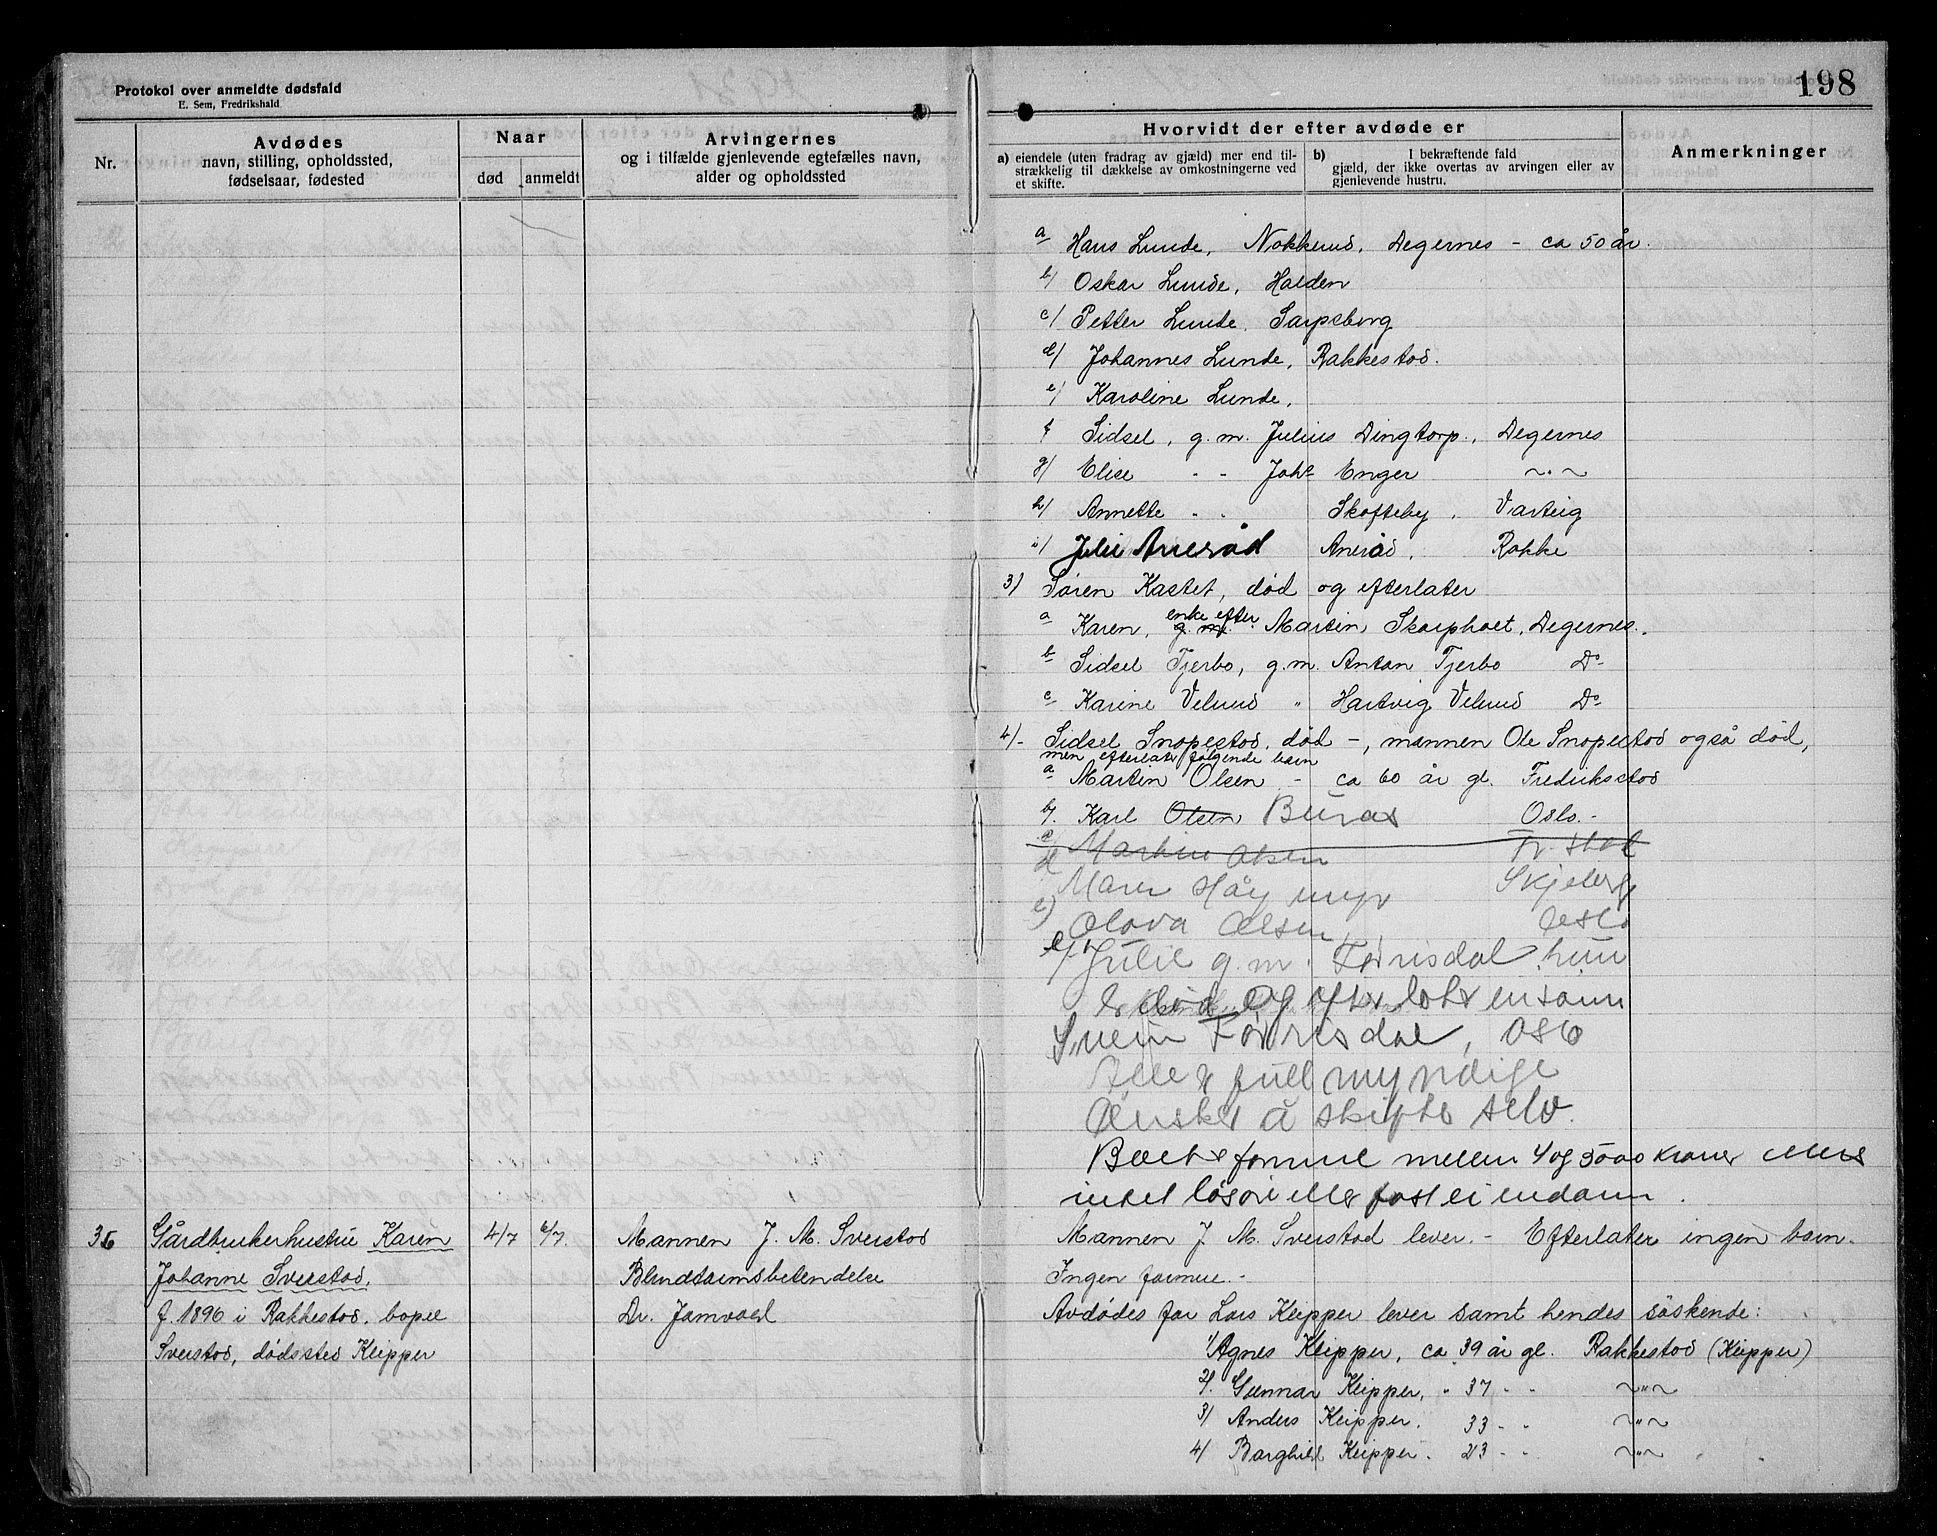 Protokol over anmeldte dødsfald
E. Sem, Fredrikshald
198
Nr.
Avdødes
navn, stilling, opholdssted,
fødselsaar, fødested
Naar
død
anmeldt
Arvingernes
og i tilfælde gjenlevende egtefælles navn,
alder og opholdssted
Hvorvidt der efter avdøde er
a) eiendele (uten fradrag av gjæld) mer end til-
strækkelig til dækkelse av omkostningerne ved
et skifte.
b) I bekræftende fald
gjæld, der ikke overtas av arvingen eller av
gjenlevende hustru.
Anmerkninger
a Hans Lunde, Nokkerud, Degernes - ca 50 år.
b/ Oskar Lunde, Halden
c/ Petter Lunde, Sarpsborg
d/ Johannes Lunde, Rakkestad.
e/ Karoline Lunde,
f Sidsel, g. m. Julius Dingtorp., Degernes
g/ Elise - - Johs Enger ~"~
h/ Annette - . Skofteby, Varteig
i/ Julie Anerød Anerød, Rokke
3) Søren Kastet, død og efterlater
a Karen, g. m. enke efter Martin, Skarpholt, Degernes.
b Sidsel Tjerbo, g. m. Anton Tjerbo Do
c Karine Velund " Hartvig Velund Do
4)- Sidsel Snopestad, død -, mannen Ole Snopestad også død,
men efterlater følgende barn
a Martin Olsen - ca 60 år gl. Fredriksstad
b/. Karl Olsen Buras Oslo. -
c Martin Olsen Fr. stad
d Maren Skjeberg
e) Olava Olsen, Oslo
f/ Julie g. m. Tørrisdal, hun
er død og efterlater en sønn
Svein Tørrisdal, Oslo
Alle er fullmyndige
Ønsker å skifte selv.
Boets formue mellem 4 og 5000 kroner ellers
intet løsøre eller fast eiendom.
36 Gårdbrukerhustru Karen 4/7 6/7. Mannen J. M. Sverstad Mannen J. M. Sverstad lever. - Efterlater ingen barn.
Johanne Sverstad, Blindtarmsbetendelse Ingen formue. -
f. 1896 i Rakkestad, bopæl Dr. Jamvold Avdødes far Lars Klepper lever samt hendes søskende:
Sverstad, dødssted Klepper 1/ Agnes Klepper, ca 39 år gl. Rakkestad (Klepper)
2/. Gunnar Klepper, " 37 - - ~"~
3/ Anders Klepper. 33 - - ~"~
4/ Borghild Klepper. 23 - - ~"~